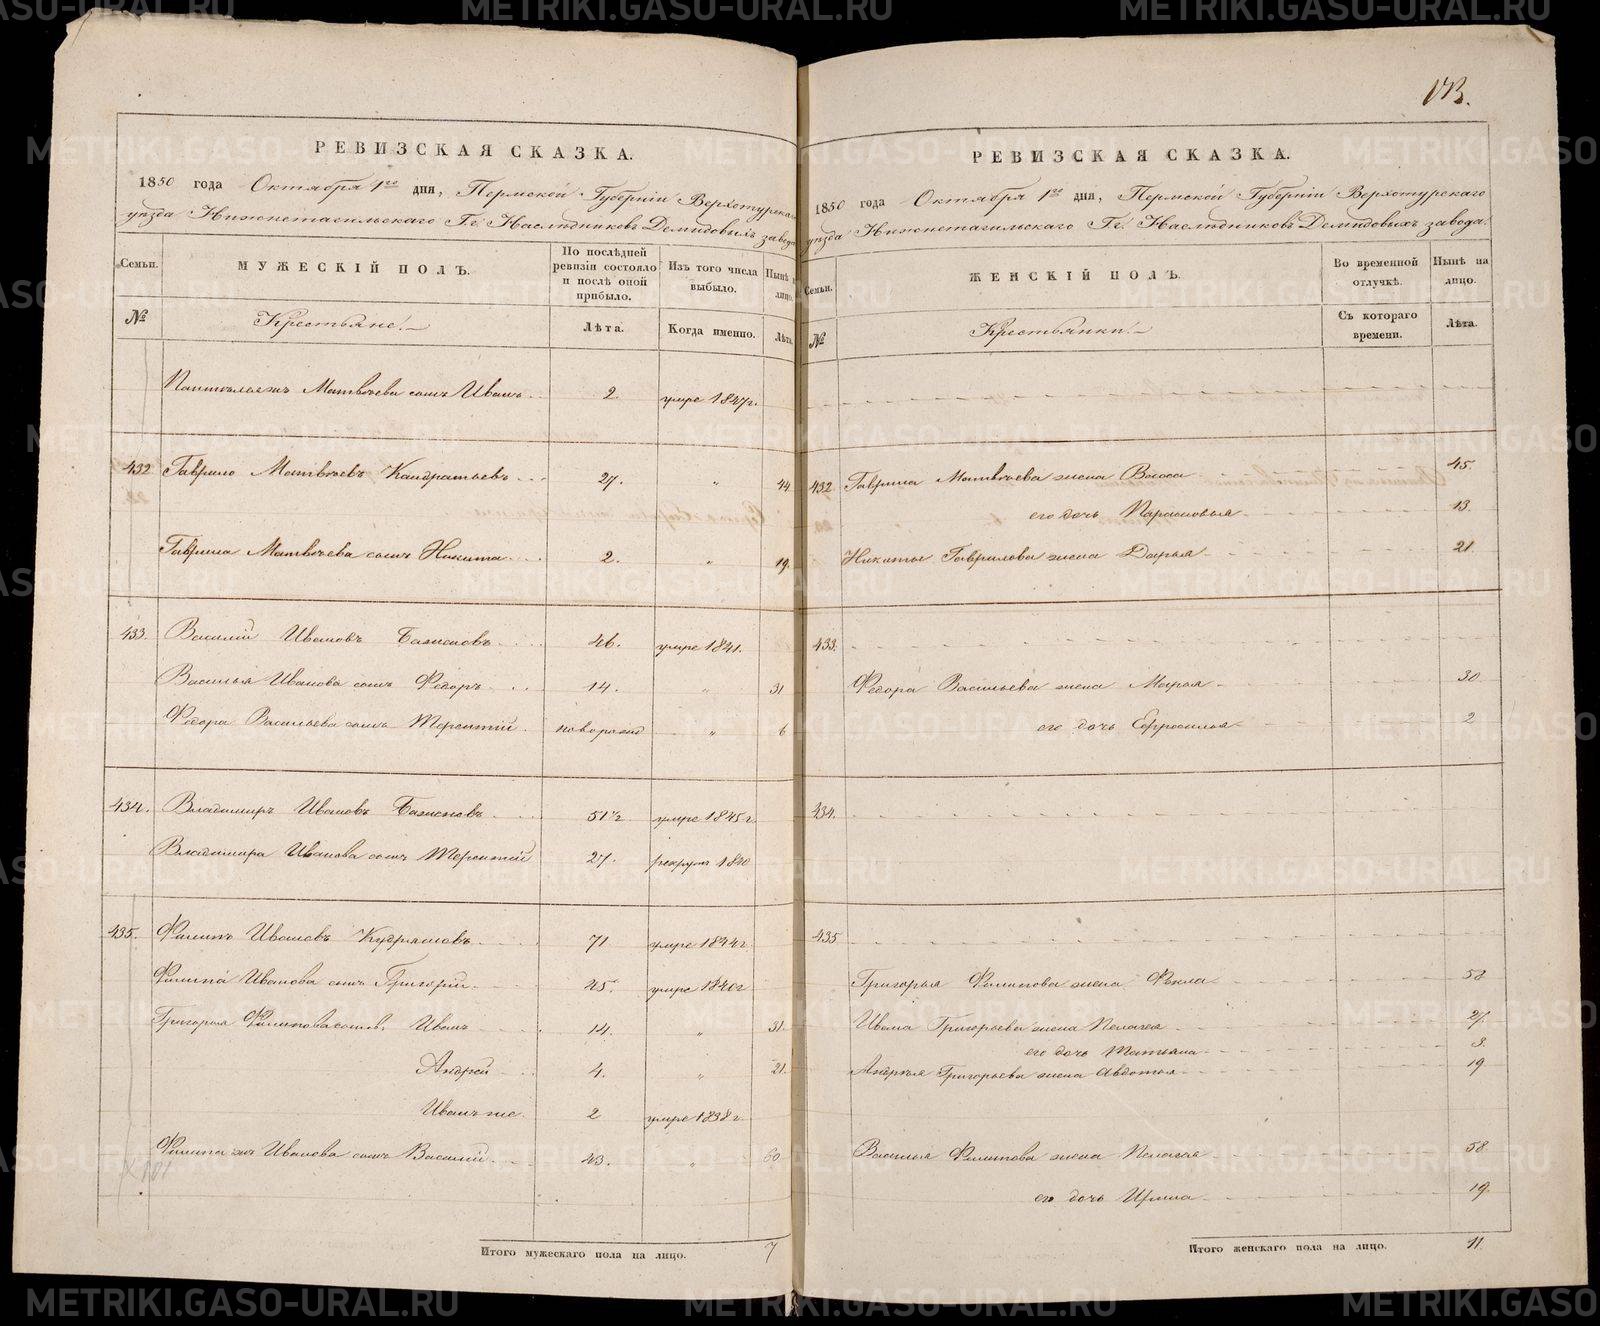 РЕВИЗСКАЯ СКАЗКА.
1850 года Октября 1го дня, Пермской Губерніи Верхотурска
уѣзда Нижнетагильскаго Гг. Наслѣдниковъ Демидовыхъ завода
Семьи. МУЖЕСКІЙ ПОЛЪ. По послѣдней ревизіи состояло и послѣ оной прибыло. Изъ того числа выбыло. Нынѣ лицо.
№ Крестьяне. Лѣта. Когда именно. Лѣта.
Матвѣева сынъ Иванъ 2 умре 1847г.
432 Гаврило Матвѣевъ Кондратьевъ 27. " 44
Гаврила Матвѣева сынъ Никита 2. " 19.
433. Василій Ивановъ Баженовъ 46. умре 1841.
Василья Иванова сынъ Федоръ 14. " 31
Федора Васильева сынъ Терентій новорожд " 6
434. Владимиръ Ивановъ Баженовъ 51½ умре 1845г
Владимира Иванова сынъ Терентій 27. рекрут 1840
435. Филипъ Ивановъ Кудряшовъ 71 умре 1844г
Филипа Иванова сынъ Григорій 45. умре 1840г
Григорья Филипова сынъ. Иванъ 14. " 31.
Андрей 4. " 21.
Иванъ же 2 умре 1838г
Филипа же Иванова сынъ Василій 43. " 60
Итого мужескаго пола на лицо. 7
173.
РЕВИЗСКАЯ СКАЗКА.
1850 года Октября 1го дня, Пермской Губерніи Верхотурскаго
уѣзда Нижнетагильскаго Гг. Наслѣдниковъ Демидовыхъ завода.
Семьи. ЖЕНСКІЙ ПОЛЪ. Во временной отлучкѣ. Нынѣ на лицо.
№ Крестьянки. Съ котораго времени. Лѣта.
432 Гаврила Матвѣева жена Васса 45.
его дочь Парасковья 13.
Никиты Гаврилова жена Дарья 21.
433.
Федора Васильева жена Марья 30
его дочь Ефросинья 2
434.
435
Григорья Филипова жена Фекла 58
Ивана Григорьева жена Пелагея 27.
его дочь Татьяна 3.
Андрея Григорьева жена Авдотья 19
Василья Филипова жена Пелагея 58
его дочь Ирина 19.
Итого женскаго пола на лицо. 11
METRIKI.GASO-URAL.RU